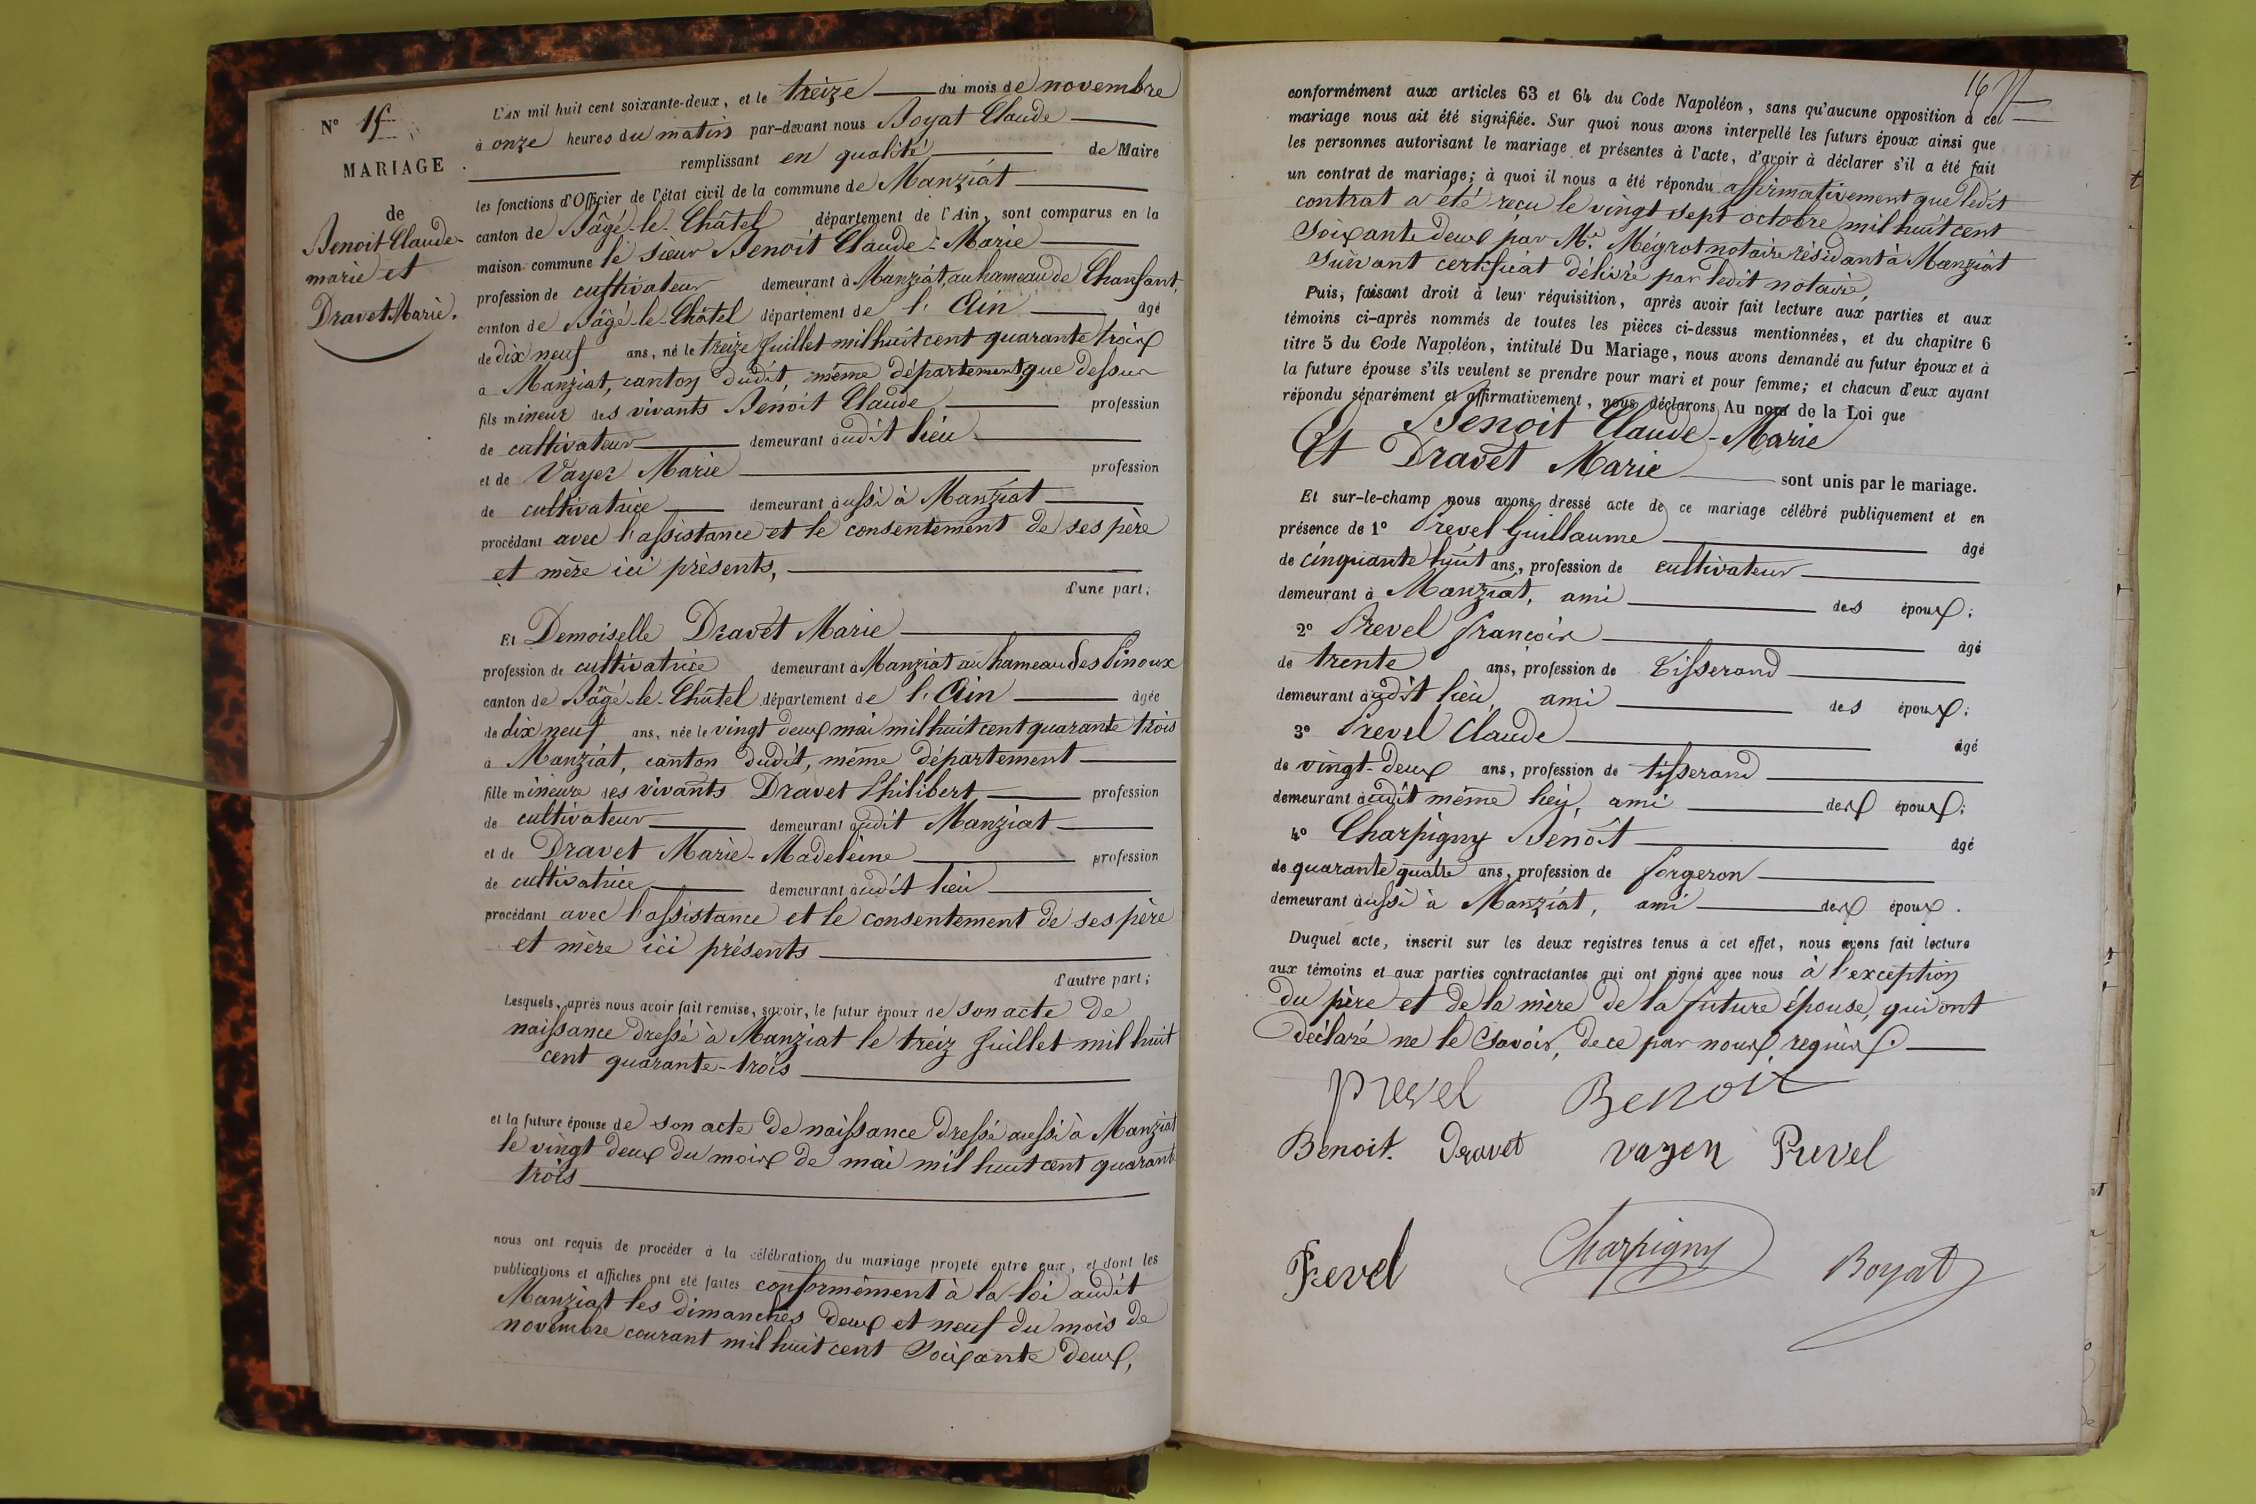 N° 15
MARIAGE
de
Benoit Claude-
marie et
Dravet Marie.
L'AN mil huit cent soixante-deux, et le treize du mois de novembre
à onze heures du matin par-devant nous Boyat Claude
remplissant en qualité de Maire
les fonctions d'Officier de l'état civil de la commune de Manziat
canton de Bâgé-le-Châtel département de l'Ain, sont comparus en la
maison commune le sieur Benoit Claude-Marie
profession de cultivateur demeurant à Manziat, au hameau de Chanfant,
canton de Bâgé-le-Châtel département de l'Ain âgé
de dix neuf ans, né le treize Juillet mil huit cent quarante trois
à Manziat, canton dudit, même département que dessus
fils mineur des vivants Benoit Claude profession
de cultivateur demeurant audit lieu
et de Vayer Marie profession
de cultivatrice demeurant aussi à Manziat
procédant avec l'assistance et le consentement de ses père
et mère ici présents,
d'une part;
Et Demoiselle Dravet Marie
profession de cultivatrice demeurant à Manziat au hameau des Pinoux
canton de Bâgé-le-Châtel département de l'Ain âgée
de dix neuf ans, née le vingt deux mai mil huit cent quarante trois
à Manziat, canton dudit, même département
fille mineure des vivants Dravet Philibert profession
de cultivateur demeurant audit Manziat
et de Dravet Marie-Madeleine profession
de cultivatrice demeurant audit lieu
procédant avec l'assistance et le consentement de ses père
et mère ici présents
d'autre part;
Lesquels, après nous avoir fait remise, savoir, le futur époux de son acte de
naissance dressé à Manziat le treiz Juillet mil huit
cent quarante-trois
et la future épouse de son acte de naissance dressé aussi à Manziat
le vingt deux du mois de mai mil huit cent quarante
trois
nous ont requis de procéder à la célébration du mariage projeté entre eux, et dont les
publications et affiches ont été faites conformément à la loi audit
Manziat les dimanches deux et neuf du mois de
novembre courant mil huit cent soixante deux,
16
conformément aux articles 63 et 64 du Code Napoléon, sans qu'aucune opposition à ce
mariage nous ait été signifiée. Sur quoi nous avons interpellé les futurs époux ainsi que
les personnes autorisant le mariage et présentes à l'acte, d'avoir à déclarer s'il a été fait
un contrat de mariage; à quoi il nous a été répondu affirmativement que ledit
contrat a été reçu le vingt sept octobre mil huit cent
soixante deux par Me. Mégrot notaire résidant à Manziat
suivant certificat délivré par ledit notaire,
Puis, faisant droit à leur réquisition, après avoir fait lecture aux parties et aux
témoins ci-après nommés de toutes les pièces ci-dessus mentionnées, et du chapitre 6
titre 5 du Code Napoléon, intitulé Du Mariage, nous avons demandé au futur époux et à
la future épouse s'ils veulent se prendre pour mari et pour femme; et chacun d'eux ayant
répondu séparément et affirmativement, nous déclarons Au nom de la Loi que
Benoit Claude-Marie
Et Dravet Marie sont unis par le mariage.
Et sur-le-champ nous avons dressé acte de ce mariage célébré publiquement et en
présence de 1° Prevel Guillaume âgé
de cinquante huit ans, profession de cultivateur
demeurant à Manziat, ami des époux;
2° Prevel françois âgé
de trente ans, profession de tisserand
demeurant audit lieu, ami des époux;
3° Prevel Claude âgé
de vingt-deux ans, profession de tisserand
demeurant audit même lieu, ami des époux;
4° Charpigny Benoît âgé
de quarante quatre ans, profession de forgeron
demeurant aussi à Manziat, ami des époux.
Duquel acte, inscrit sur les deux registres tenus à cet effet, nous avons fait lecture
aux témoins et aux parties contractantes qui ont signé avec nous à l'exception
du père et de la mère de la future épouse, qui ont
déclaré ne le savoir, de ce par nous requis.
Prevel Benoit
Benoit. Dravet vayer Prevel
Prevel Charpigny Boyat